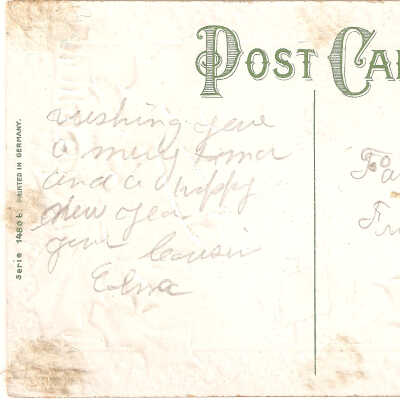 POST CA
wishing you
a merry xmas
and a happy
new year
your Cousin
Edna
Fr
Serie 1480 b. PRINTED IN GERMANY.